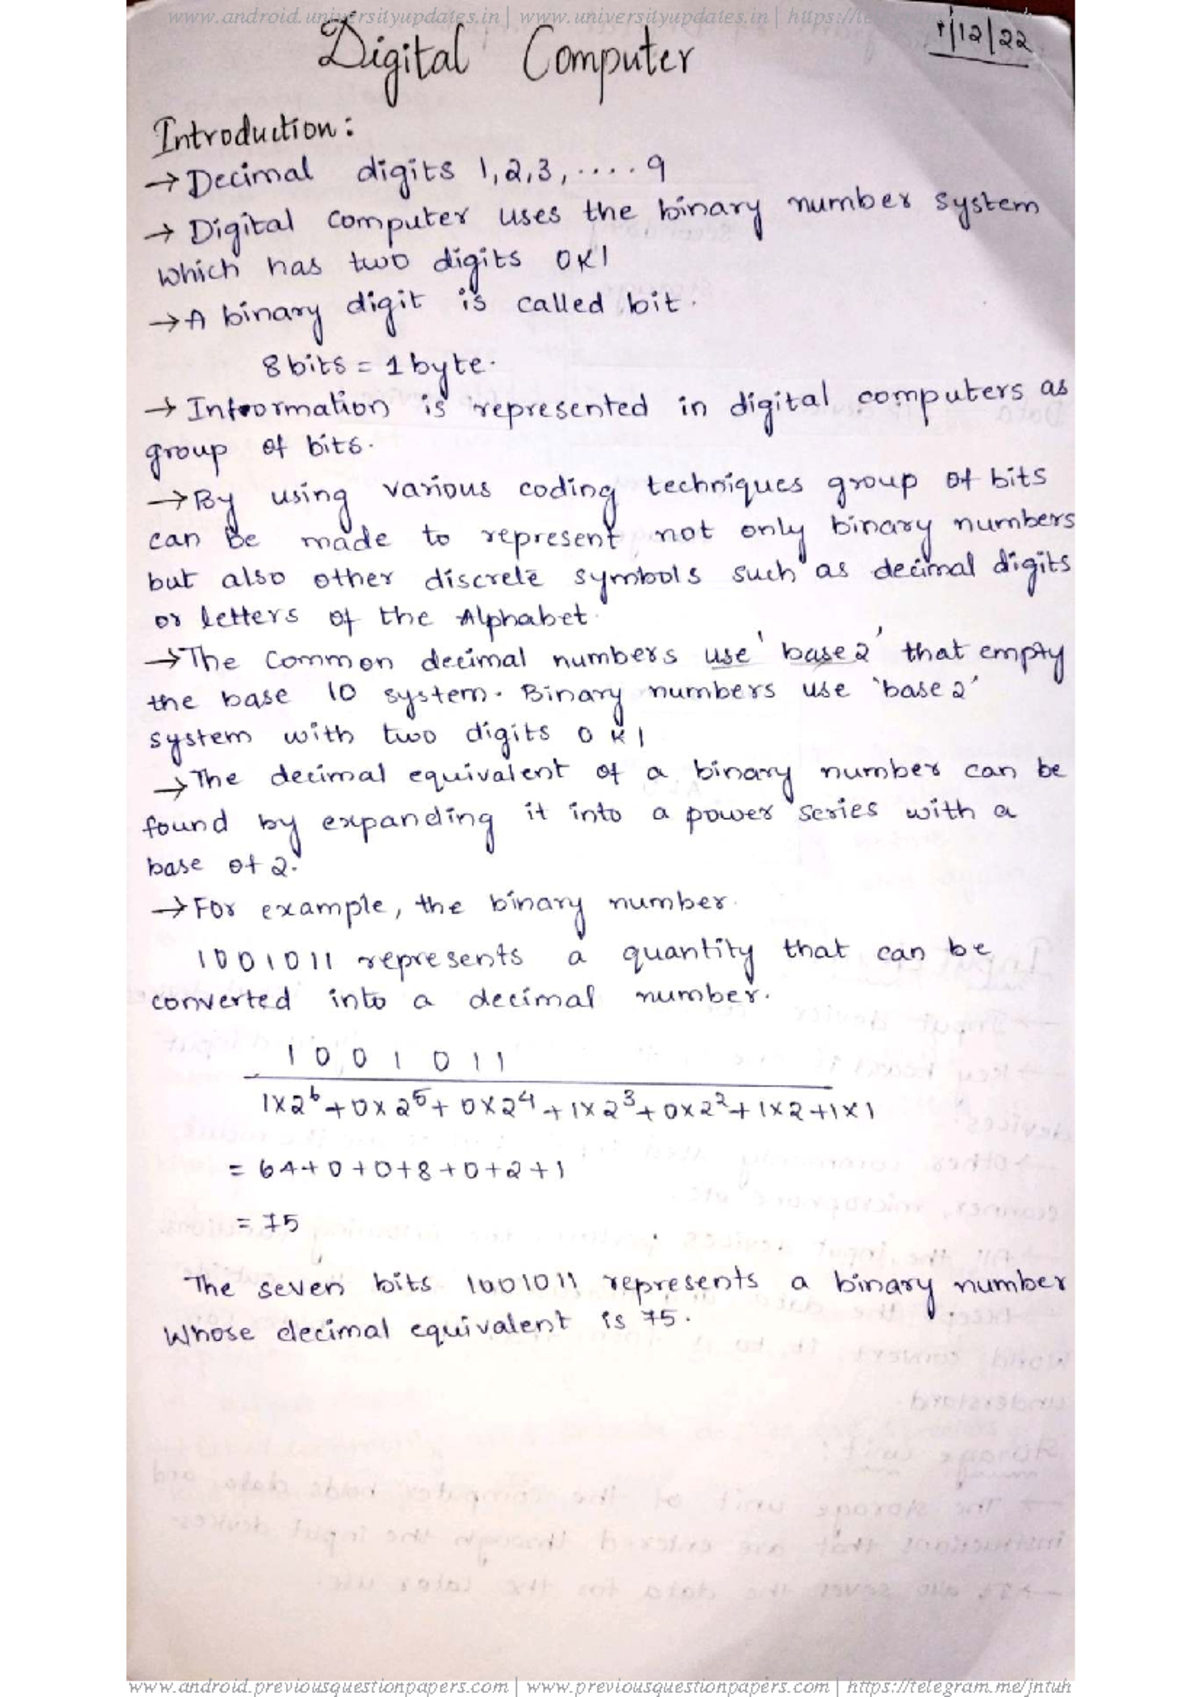 www.android.universityupdates.in | www.universityupdates.in | https://telegram
Digital Computer
/12/22
Introduction:
→ Decimal digits 1,2,3,.....9
→ Digital computer uses the binary number system
which has two digits 0&1
→ A binary digit is called bit.
8 bits = 1 byte.
→ Information is represented in digital computers as
group of bits.
→ By using various coding techniques group of bits
can be made to represent not only binary numbers
but also other discrete symbols such as decimal digits
or letters of the Alphabet.
→ The common decimal numbers use 'base 2' that empty
the base 10 system. Binary numbers use 'base 2'
system with two digits 0 & 1
→ The decimal equivalent of a binary number can be
found by expanding it into a power series with a
base of 2.
→ For example, the binary number.
1001011 represents a quantity that can be
converted into a decimal number.
1 0 0 1 0 1 1
1×2⁶+0×2⁵+0×2⁴+1×2³+0×2²+1×2+1×1
= 64+0+0+8+0+2+1
= 75
The seven bits 1001011 represents a binary number
whose decimal equivalent is 75.
www.android.previousquestionpapers.com | www.previousquestionpapers.com | https://telegram.me/jntuh